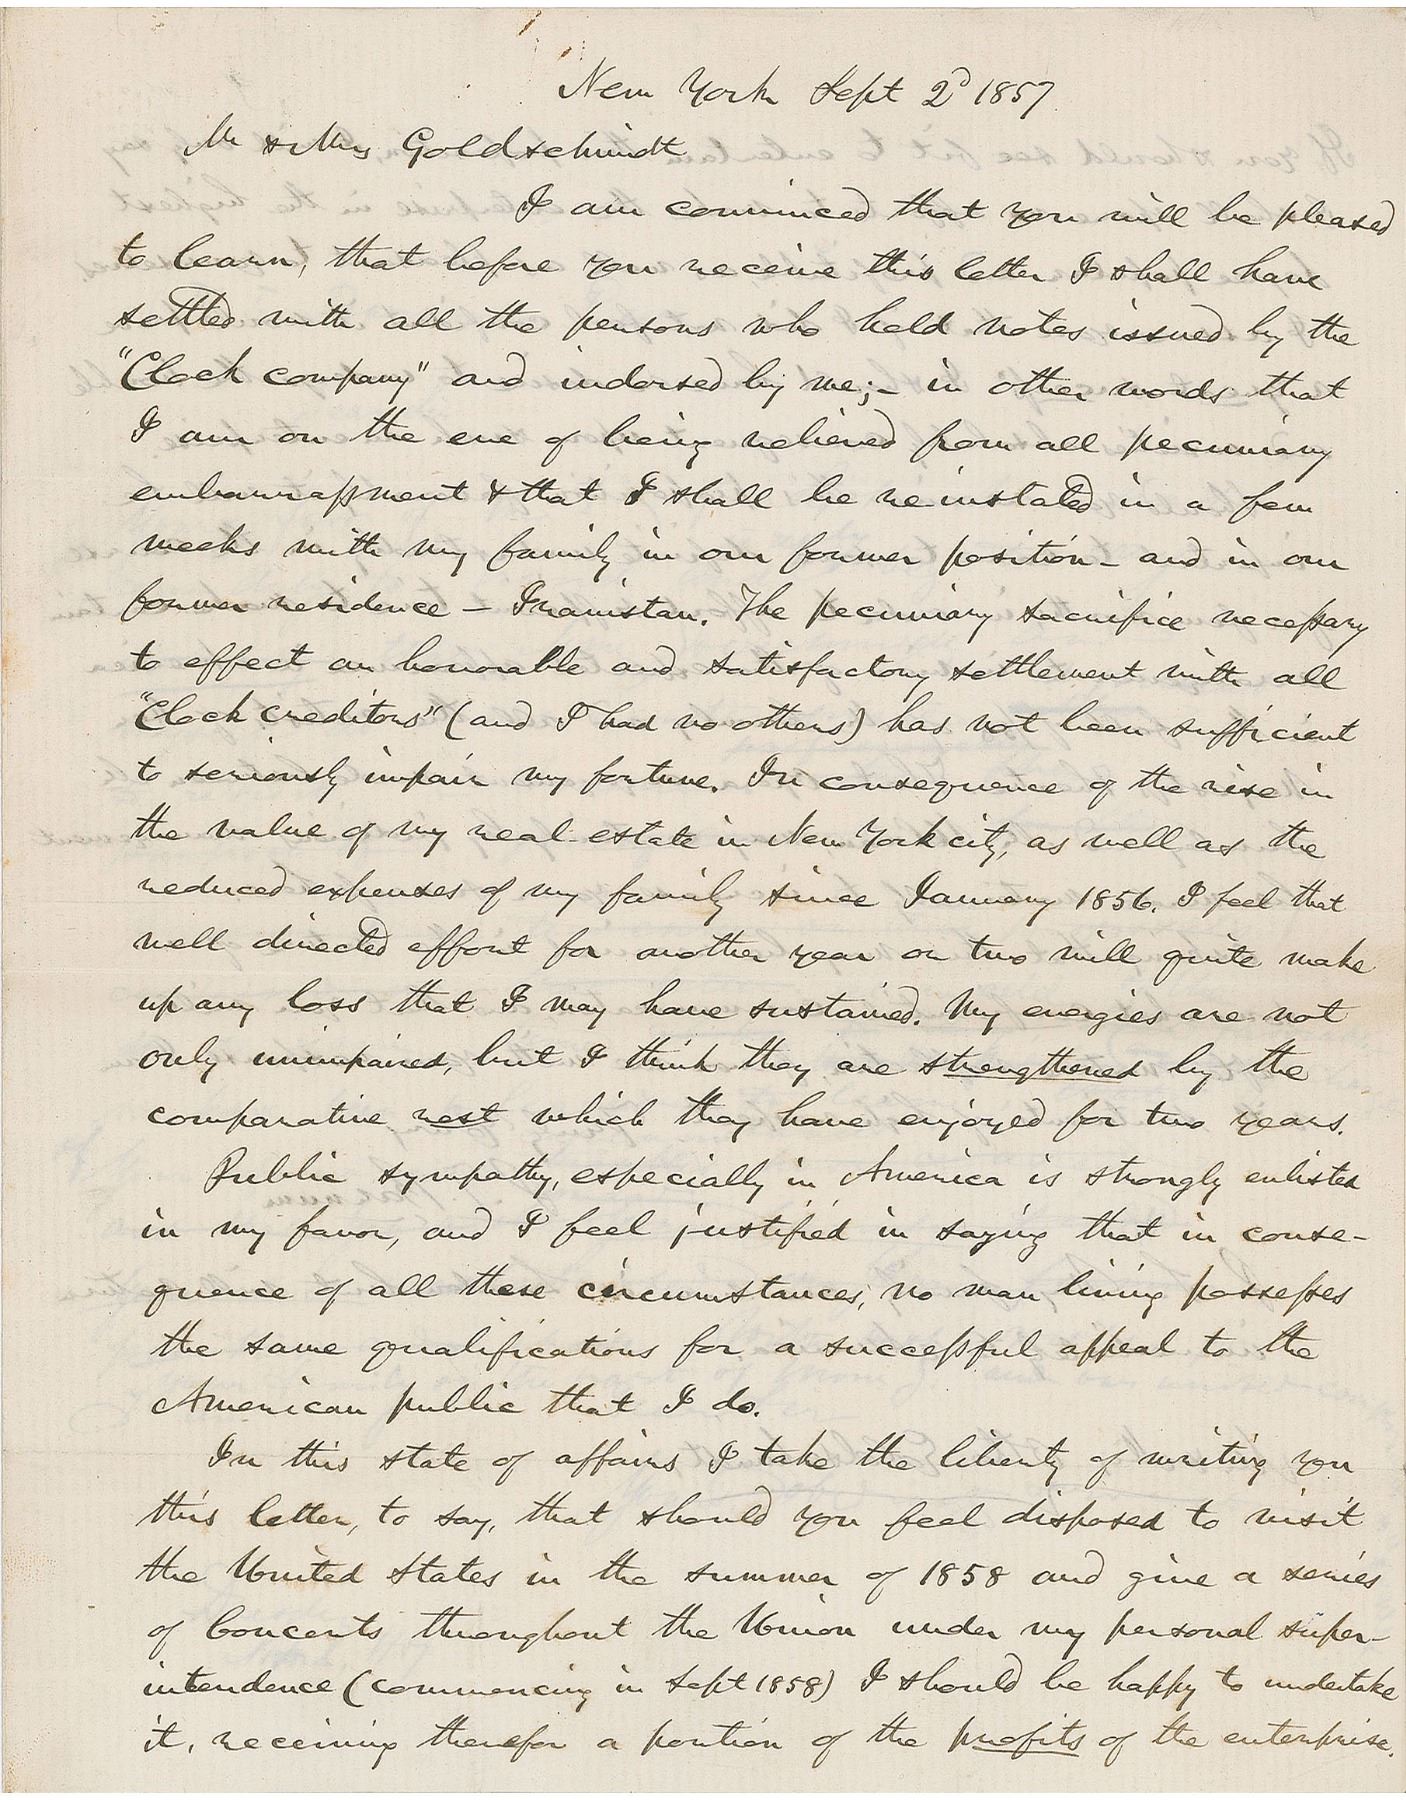 New York Sept 2d 1857
Mr & Mrs Goldschmidt
I am convinced that you will be pleased
to learn, that before you receive this letter I shall have
settled with all the persons who held notes issued by the
"Clock company" and indorsed by me;- in other words that
I am on the eve of being relieved from all pecuniary
embarrassment & that I shall be reinstated in a few
weeks with my family in our former position - and in our
former residence - Iranistan. The pecuniary sacrifice necessary
to effect an honorable and satisfactory settlement with all
"Clock creditors" (and I had no others) has not been sufficient
to seriously impair my fortune. In consequence of the rise in
the value of my real estate in New York city, as well as the
reduced expenses of my family since January 1856. I feel that
well directed effort for another year or two will quite make
up any loss that I may have sustained. My energies are not
only unimpaired, but I think they are strengthened by the
comparative rest which they have enjoyed for two years.
Public sympathy, especially in America is strongly enlisted
in my favor, and I feel justified in saying that in conse-
quence of all these circumstances, no man living possesses
the same qualifications for a successful appeal to the
American public that I do.
In this state of affairs I take the liberty of writing you
this letter, to say, that should you feel disposed to visit
the United States in the summer of 1858 and give a series
of Concerts throughout the Union under my personal super-
intendence (commencing in Sept 1858) I should be happy to undertake
it, receiving therefor a portion of the profits of the enterprise.